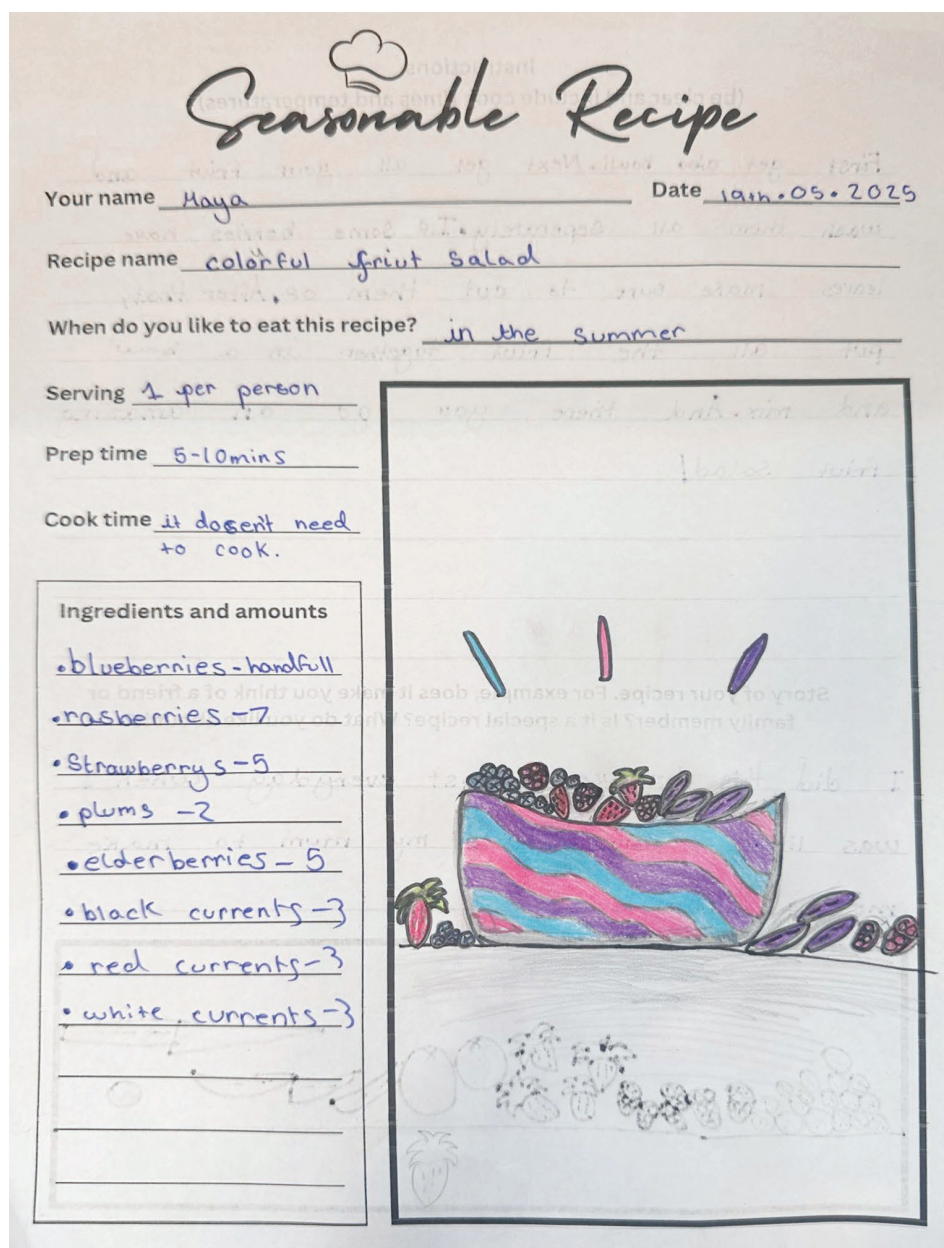 Seasonable Recipe
Your name Maya Date 19th.05.2025
Recipe name colorful friut Salad
When do you like to eat this recipe? in the Summer
Serving 1 per person
Prep time 5-10mins
Cook time it dosen't need
to cook.
Ingredients and amounts
• blueberries - handfull
• rasberries - 7
• Strawberrys - 5
• plums - 2
• elderberries - 5
• black currents - 3
• red currents - 3
• white currents - 3